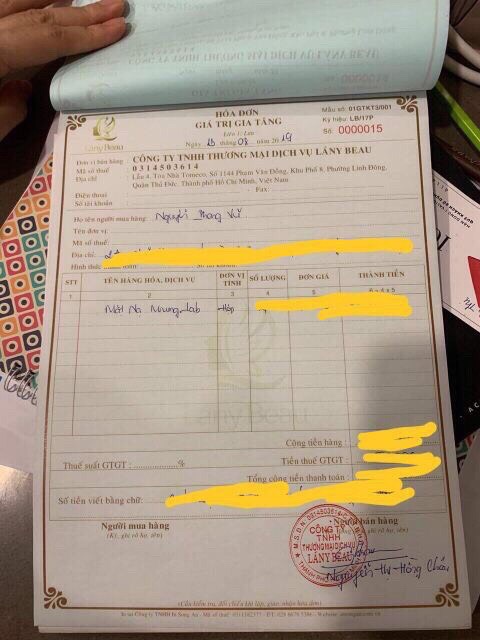 HÓA ĐƠN
GIÁ TRỊ GIA TĂNG
Liên 1: Lưu
Mẫu số: 01GTKT3/001
Ký hiệu: LB/17P
Số: 0000015
Lány Beau
Ngày tháng 08 năm 2019
Đơn vị bán hàng : CÔNG TY TNHH THƯƠNG MẠI DỊCH VỤ LÁNY BEAU
Mã số thuế : 0314503614
Địa chỉ : Lầu 4, Tòa Nhà Tomeco, Số 1144 Phạm Văn Đồng, Khu Phố 8, Phường Linh Đông,
Quận Thủ Đức, Thành phố Hồ Chí Minh, Việt Nam
Điện thoại : Fax:
Số tài khoản :
Họ tên người mua hàng: Nguyễn Phong Vũ
Tên đơn vị:
Mã số thuế:
Địa chỉ:
Hình thức
STT TÊN HÀNG HÓA, DỊCH VỤ ĐƠN VỊ TÍNH SỐ LƯỢNG ĐƠN GIÁ THÀNH TIỀN
1 2 3 4 5 6 = 4 x 5
Mặt Nạ Nhung Lab Hộp
Lány Beau
Cộng tiền hàng :
Thuế suất GTGT : %
Tiền thuế GTGT :
Tổng cộng tiền thanh toán :
Số tiền viết bằng chữ:
Người mua hàng
(Ký, ghi rõ họ, tên)
Người bán hàng
CÔNG TY
TNHH
THƯƠNG MẠI DỊCH VỤ
LÁNY BEAU
(Cần kiểm tra, đối chiếu khi lập, giao, nhận hóa đơn)